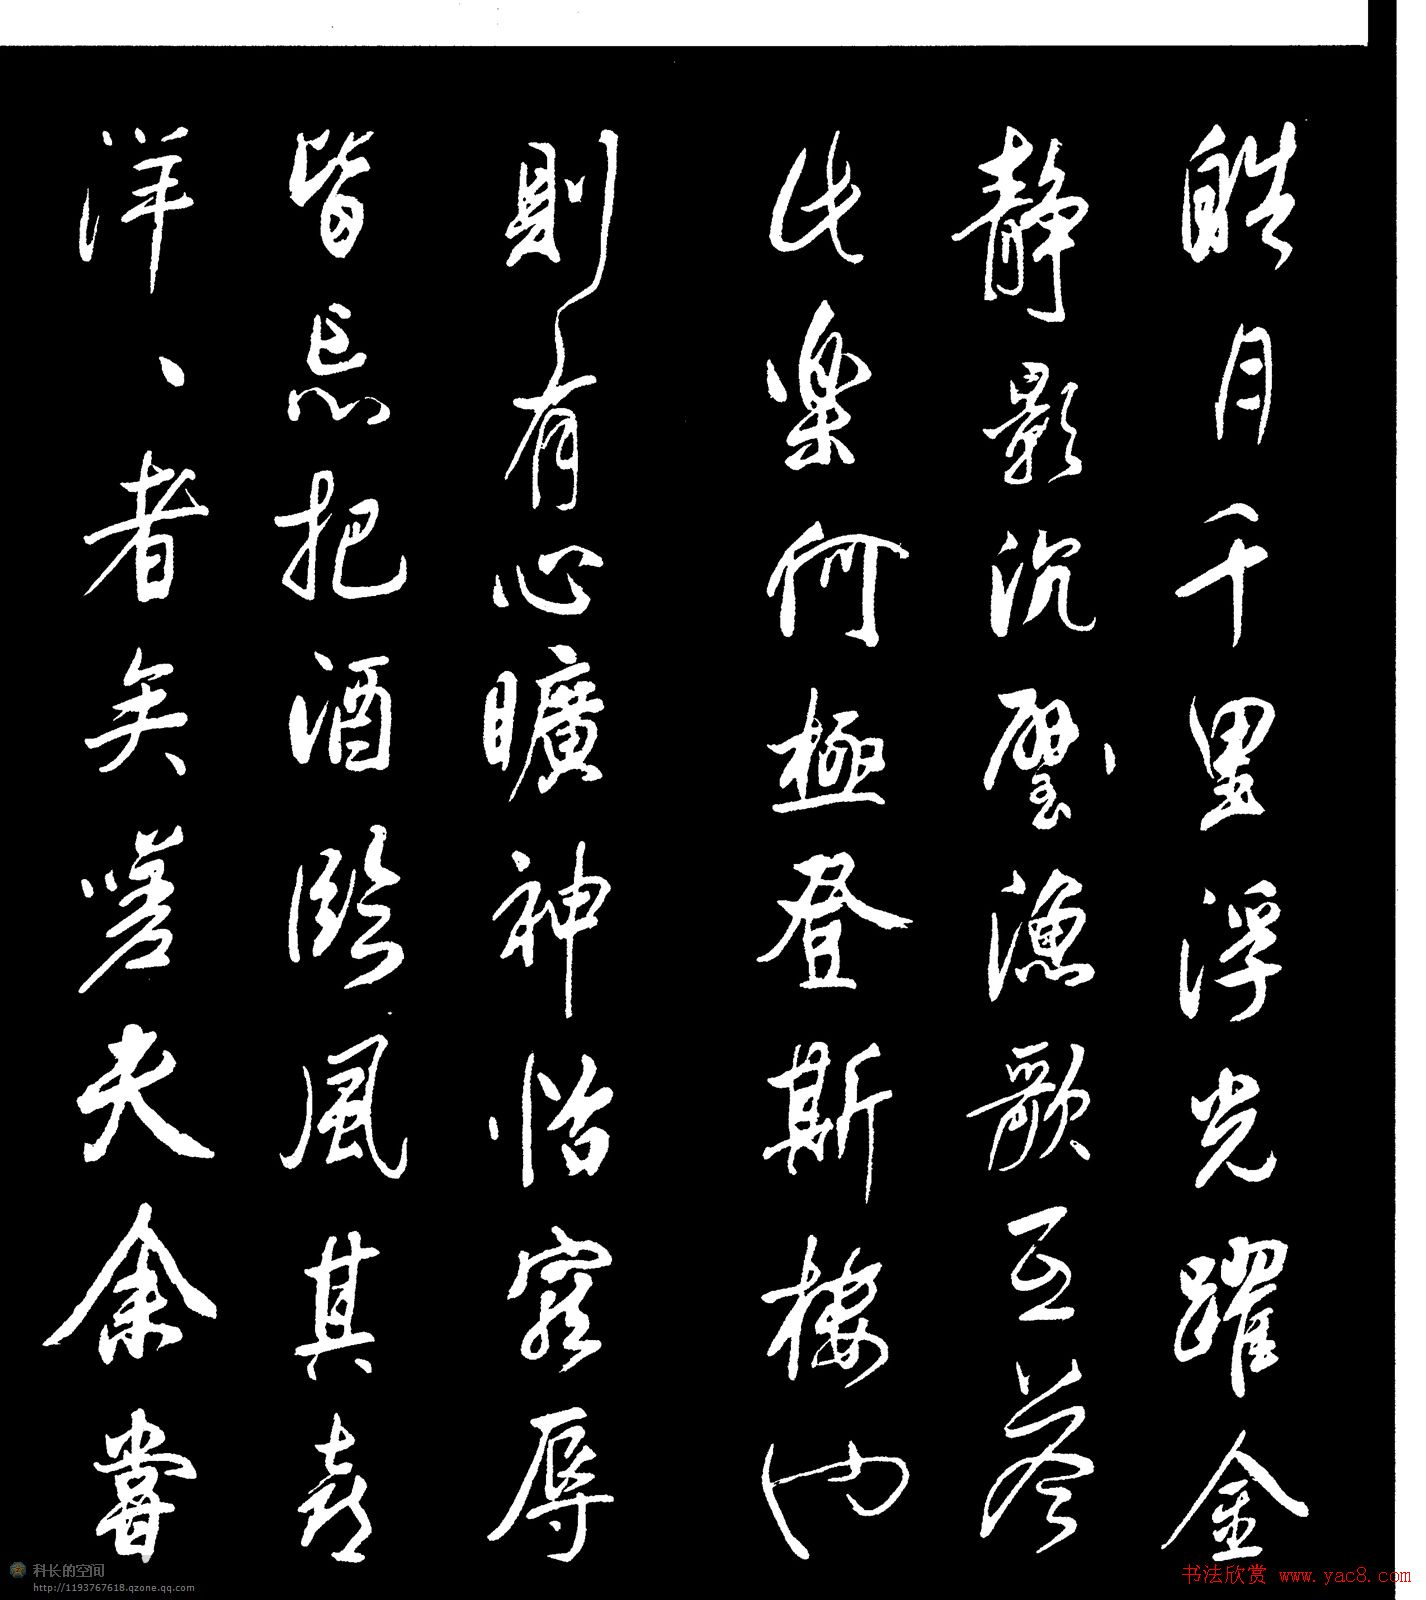 皓月千里浮光躍金
静影沉璧漁歌互荅
此楽何極登斯樓也
則有心曠神怡寵辱
皆忘把酒臨風其喜
洋、者矣嗟夫余嘗
科长的空间
http://1193767618.qzone.qq.com
书法欣赏 www.yac8.com